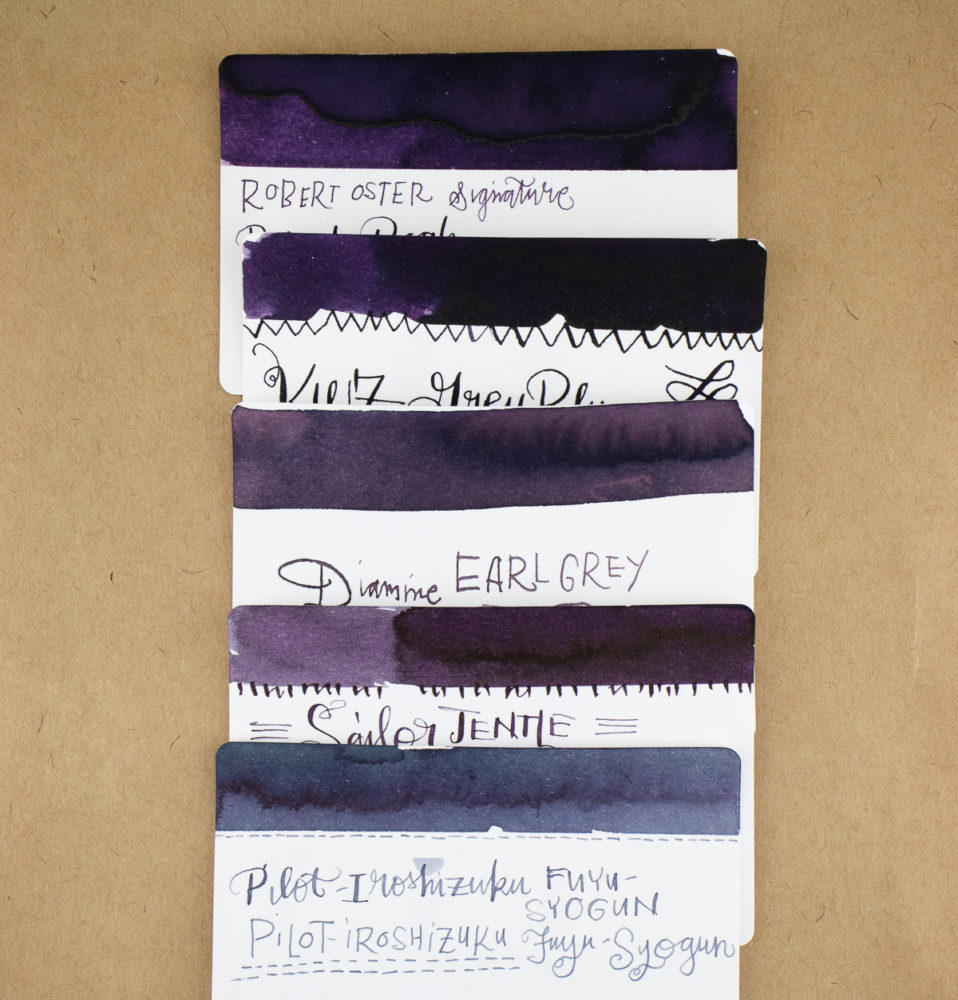 ROBERT OSTER Signature
Diamine EARL GREY
Sailor JENTLE
Pilot-Iroshizuku FUYU-
SYOGUN
PILOT-IROSHIZUKU Fuyu-Syogun